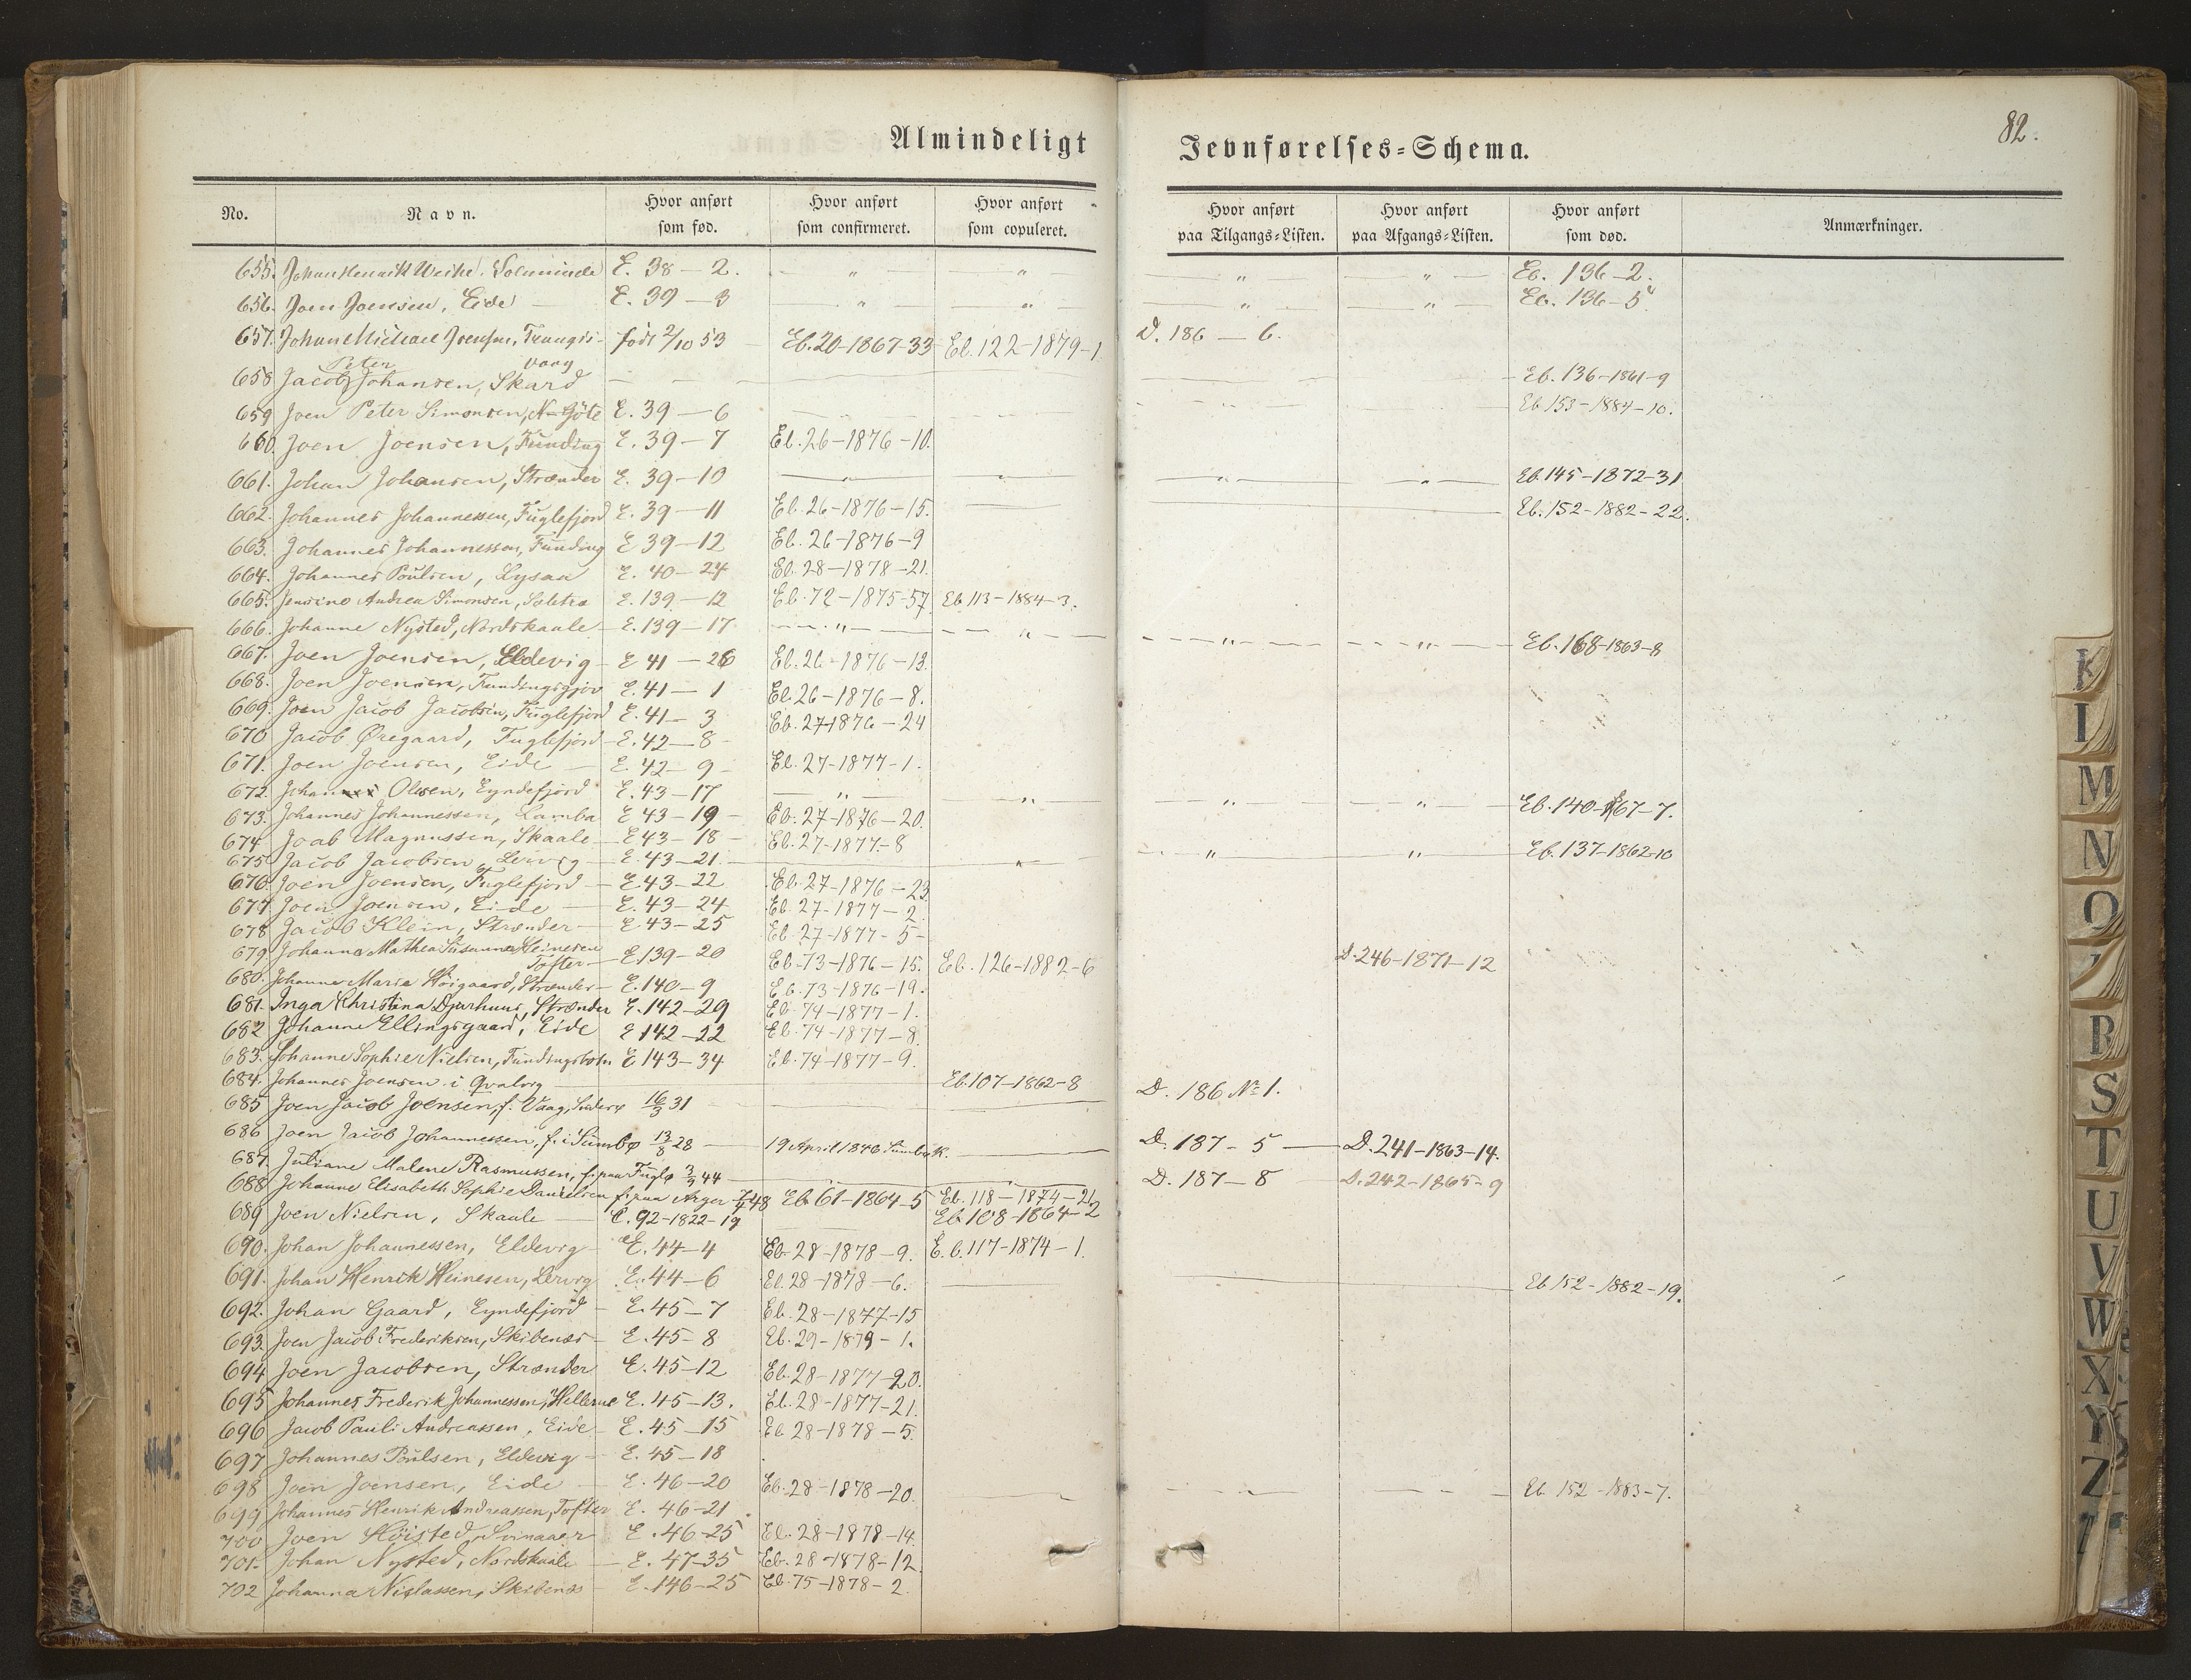 Almindeligt Jevnførelses=Schema.
82.
No. Navn. Hvor anført som fød. Hvor anført som confirmeret. Hvor anført som copuleret. Hvor anført paa Tilgangs=Listen. Hvor anført paa Afgangs=Listen. Hvor anført som død. Anmærkninger.
655. Johan Henrik Weihe, E. 38 — 2. — " — " — " — " — Eb. 136-2.
656. Joen Joensen, Eide — E. 39 — 3 — " — " — " — " — Eb. 136-5
657. Johan Michael Joensen, Trangis- født 2/10 53 — Eb. 20-1867-33 Eb. 122-1879-1 D. 186 — 6.
vaag
Peter
658 Jacob Johansen, Skard — — — Eb. 136-1861-9
659 Joen Peter Simonsen, N. Gøte E. 39 — 6 — — Eb 153-1884-10.
660. Joen Joensen, Funding E. 39 — 7 Eb. 26-1876-10.
661. Johan Johansen, Strænder E. 39 — 10 — " — " — " — " — Eb. 145-1872-31
662. Johannes Johannessen, Fuglefjord E. 39 — 11 Eb. 26-1876-15. — — Eb. 152-1882-22.
663. Johannes Johannessen, Funding E 39 — 12 Eb. 26-1876-9
664. Johannes Poulsen, Lysaa E. 40 — 24 Eb. 28-1878-21.
665. Jensine Andrea Simonsen, Saltnæ E. 139. — 12 Eb. 72-1875-57. Eb 113-1884-3.
666. Johanne Nysted, Nordskaale — E. 139 — 17 — " — " — " — " — Eb. 168-1863-8
667. Joen Joensen, Eldevig — E 41 — 26 Eb. 26-1876-13.
668. Joen Joensen, Fundingsgjov E. 41 — 1 Eb. 26-1876-8.
669. Joen Jacob Jacobsen, Fuglefjord E. 41 — 3 Eb. 27-1876-24
670 Jacob Øregaard, Fuglefjord — E. 42 — 8 —
671. Joen Joensen, Eide — E. 42 — 9 — Eb. 27-1877-1.
672. Johannes Olesen, Eyndefjord E. 43 — 17 — " — " — " — " — Eb. 140-67-7.
673. Johannes Johannessen, Lamba E 43 — 19 — Eb. 27-1876-20.
674 Joab Magnussen, Skaale E 43 — 18 — Eb. 27-1877-8
675 Jacob Jacobsen, Lervig — E. 43 — 21. — " — " — " — Eb. 137-1862-10
676. Joen Joensen, Fuglefjord — E. 43 — 22 Eb. 27-1876-23.
677 Joen Joensen, Eide — E. 43 — 24 Eb. 27-1877-2.
678 Jacob Klein, Strænder — E 43 — 25 Eb. 27-1877-5-
679. Johanna Mathea Susanna Heinesen
Tofter — E 139 — 20 Eb. 73-1876-15. Eb. 126-1882-6 D. 246-1871-12
680. Johanne Maria Höigaard, Strænder — E. 140 — 9 Eb. 73-1876-19.
681. Inga Christina Djurhuus, Strænder E. 142 — 29 Eb. 74-1877-1.
682 Johanne Ellingsgaard, Eide E 142 — 22 Eb. 74-1877-8.
683. Johanne Sophie Nielsen, Fundingsbotn E 143 — 34 Eb. 74-1877-9.
684. Johannes Joensen i Qvalvig — Eb. 107-1862-8 D. 186 No 1.
685 Joen Jacob Joensen, f. Vaag, Suderø 16/3 31 — —
686 Joen Jacob Johannessen, f. i Sumbø 13/8 28 — 19 April 1846 Sumbø K. — D. 187 — 5 — D. 241-1863-14.
687. Juliane Malene Rasmussen, f. paa Fuglø 3/3 44 — — D. 187 — 8 — D. 242-1865-9
688. Johanne Elisabeth Sophie Danielsen f. paa Arger 7/7 48 Eb 61-1864-5 Eb. 118-1874-21
689 Joen Nielsen, Skaale — C. 92-1822-19 Eb 108-1864-2
690. Johan Johannessen, Eldevig — E. 44 — 4 Eb. 28-1878-9. E. b. 117-1874-1.
691. Johan Henrik Heinesen, Lervig E. 44 — 6 Eb. 28-1878-6. — — Eb 152-1882-19.
692. Johan Gaard, Eyndefjord — E. 45 — 7 Eb. 28-1877-15
693. Joen Jacob Frederiksen, Skibenæs — E. 45 — 8 Eb. 29-1879-1.
694 Joen Jacobsen, Strænder E. 45 — 12 Eb. 28-1877-20.
695 Johannes Frederik Johannessen, Hellerne E. 45 — 13. Eb. 28-1877-21.
696 Jacob Pauli Andreassen, Eide E. 45 — 15 Eb 28-1878-5.
697 Johannes Poulsen, Eldevig — E. 45 — 18
698 Joen Joensen, Eide — E. 46 — 20 Eb. 28-1878-20. — — — Eb 152-1883-7.
699 Johannes Henrik Andreassen, Tofter E. 46 — 21.
700 Joen Höisted, Svinaaer E. 46-25 Eb. 28-1878-14.
701. Johan Nysted, Nordskaale — E. 47-35 Eb. 28-1878-12
702 Johanna Niclassen, Skibenæs — E. 146 — 25 Eb. 75-1878-2.
K
M
N
O
R
S
T
U
V
W
X
Y
Z